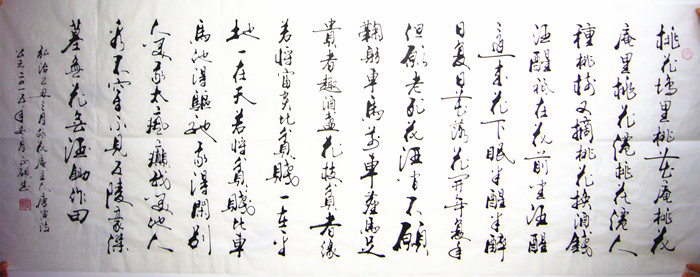 桃花塢里桃花庵桃花
庵里桃花仙桃花仙人
種桃樹又摘桃花換酒錢
酒醒祇在花前坐酒醒
還來花下眠半醒半醉
日复日花落花開年复年
但願老死花酒間不願
鞠躬車馬前車塵馬足
貴者趣酒盞花枝貧者緣
若將富貴比貧賤一在平
地一在天若將貧賤比車
馬他得驅馳我得閑別
人笑我太瘋癲我笑他人
看不穿不見五陵豪傑
墓無花無酒鋤作田
弘治乙丑三月桃花庵主人唐寅詩
公元二〇一五年五月